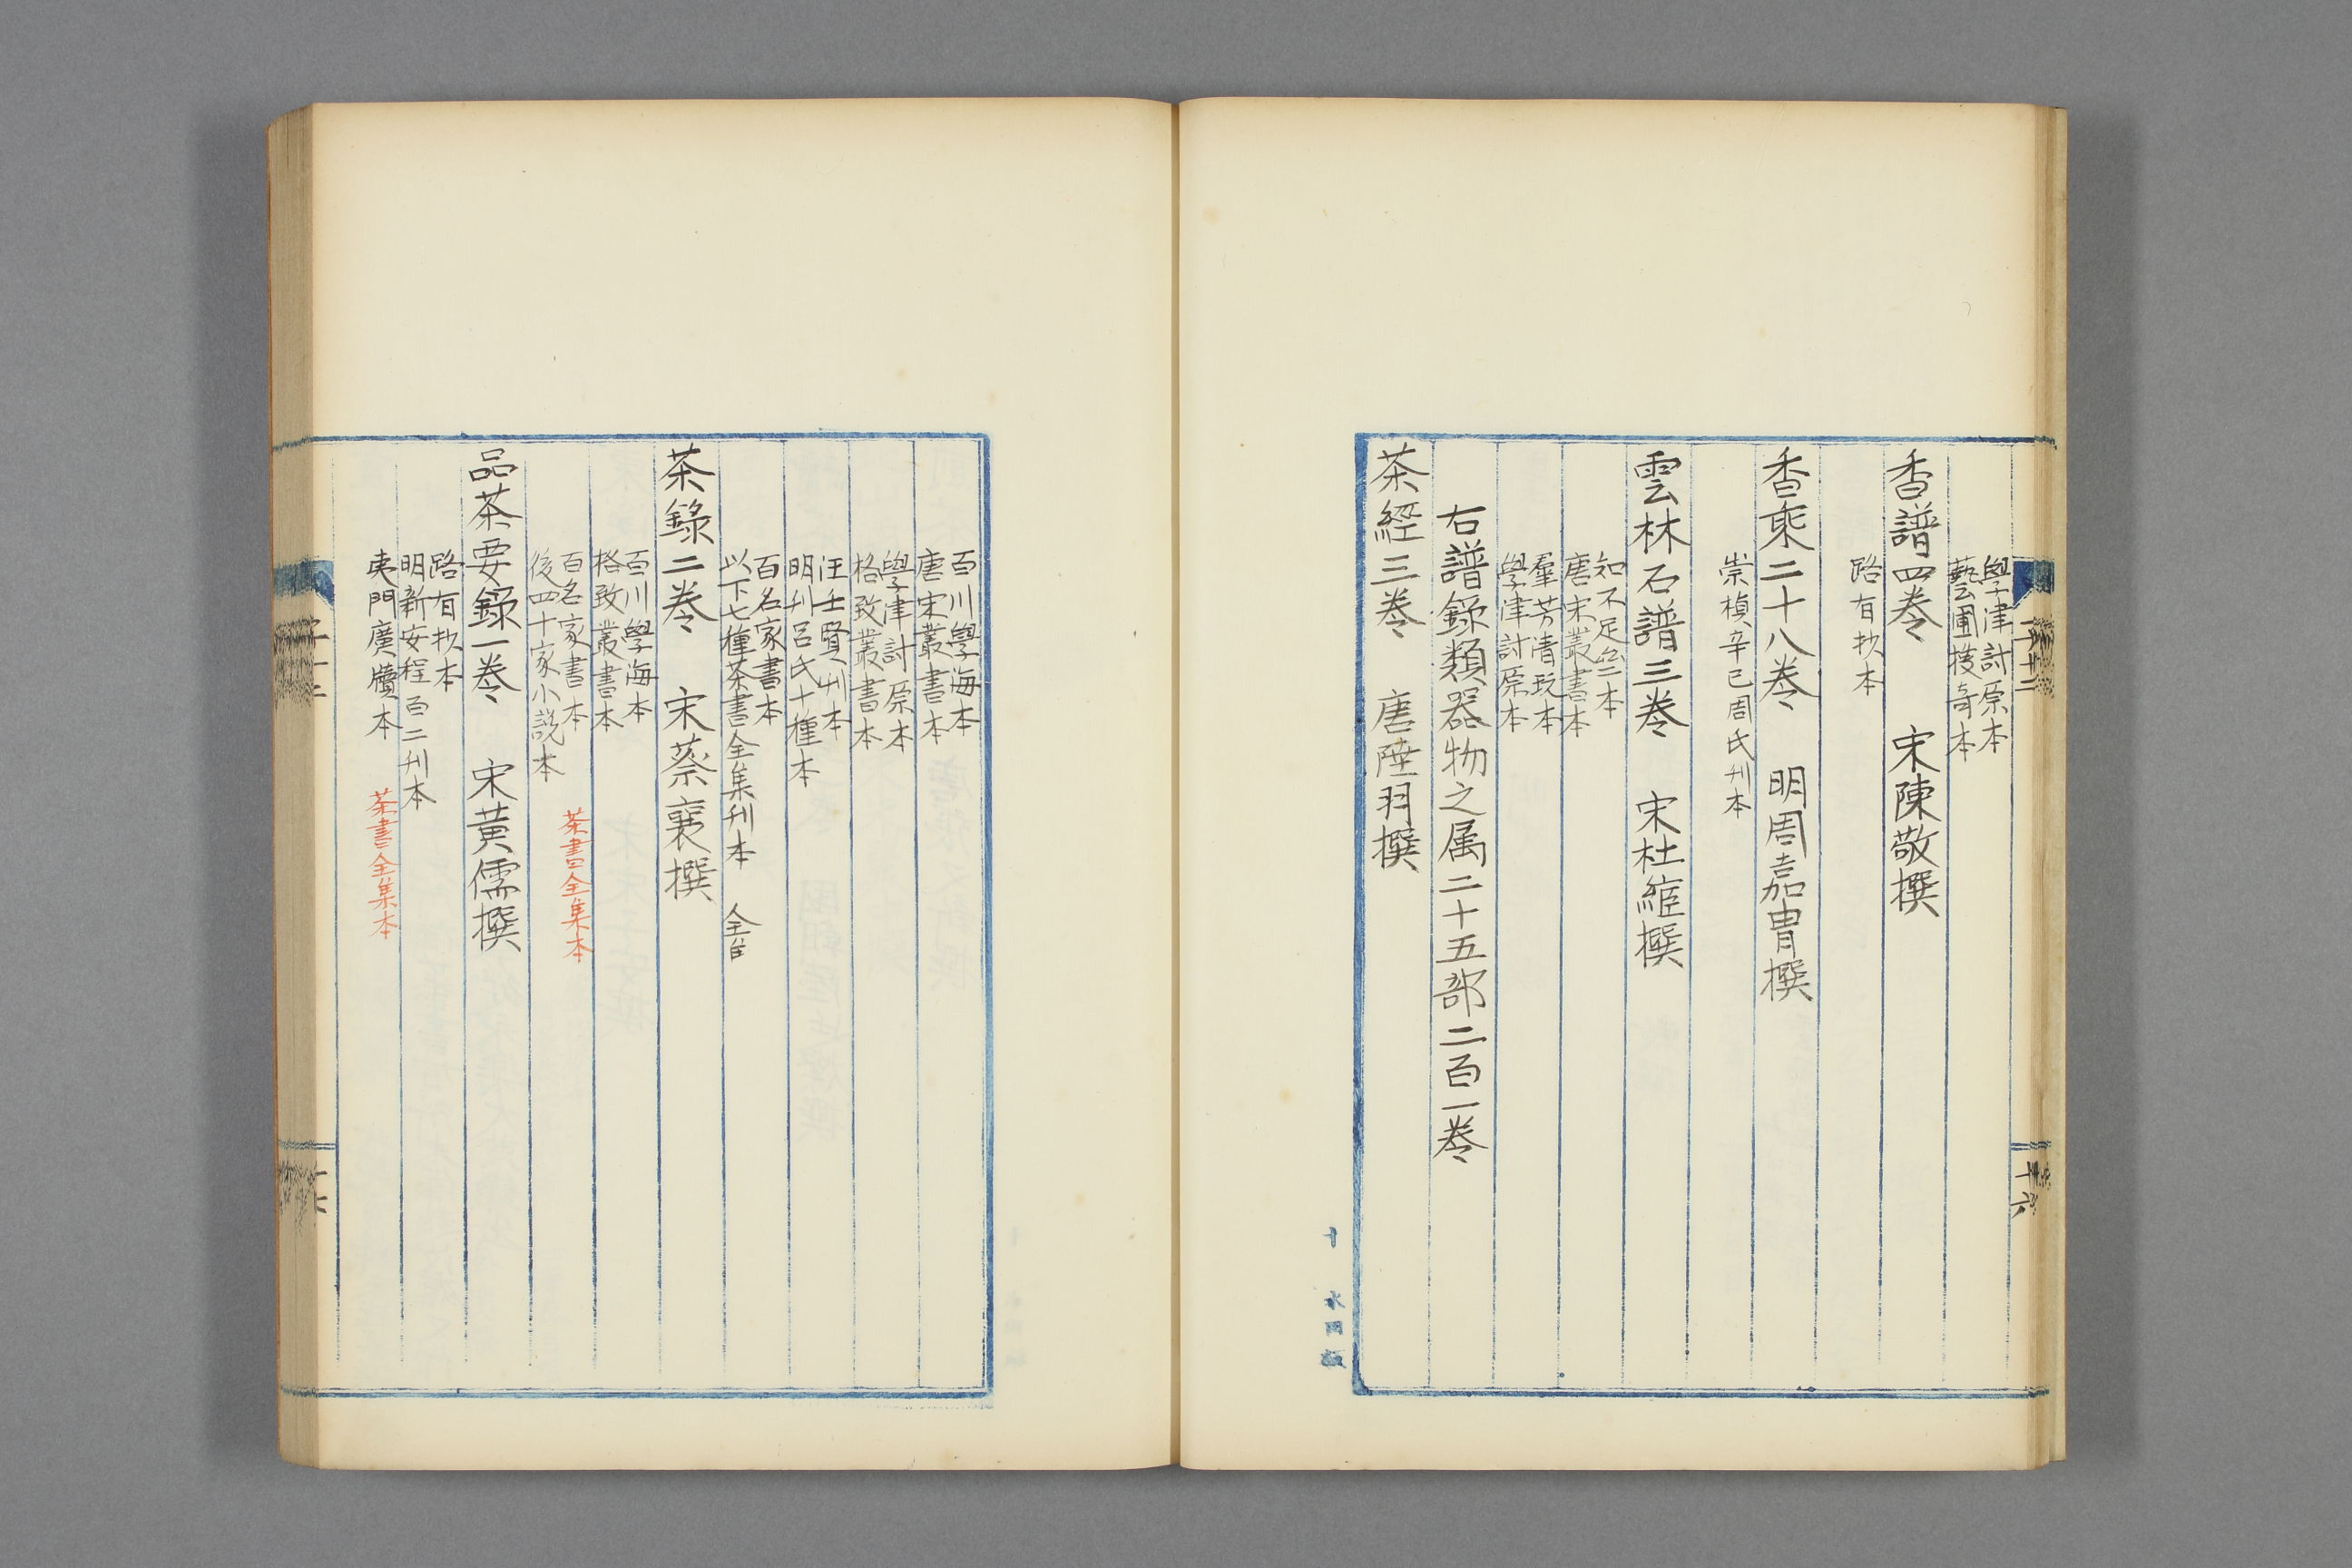 學津討原本
藝圃搜奇本
香譜四卷　宋陳敬撰
路有抄本
香乘二十八卷　明周嘉胄撰
崇楨辛巳周氏刊本
雲林石譜三卷　宋杜綰撰
知不足齋本
唐宋叢書本
羣芳清玩本
學津討原本
右譜錄類器物之属二十五部二百一卷
茶經三卷　唐陸羽撰
百川學海本
唐宋叢書本
學津討原本
格致叢書本
汪士賢刊本
明刊呂氏十種本
百名家書本
以下七種茶書全集刊本　全皆
茶錄二卷　宋蔡襄撰
百川學海本
格致叢書本
百名家書本　茶書全集本
後四十家小説本
品茶要錄一卷　宋黃儒撰
路有抄本
明新安程百二刊本
夷門廣牘本　茶書全集本
十六